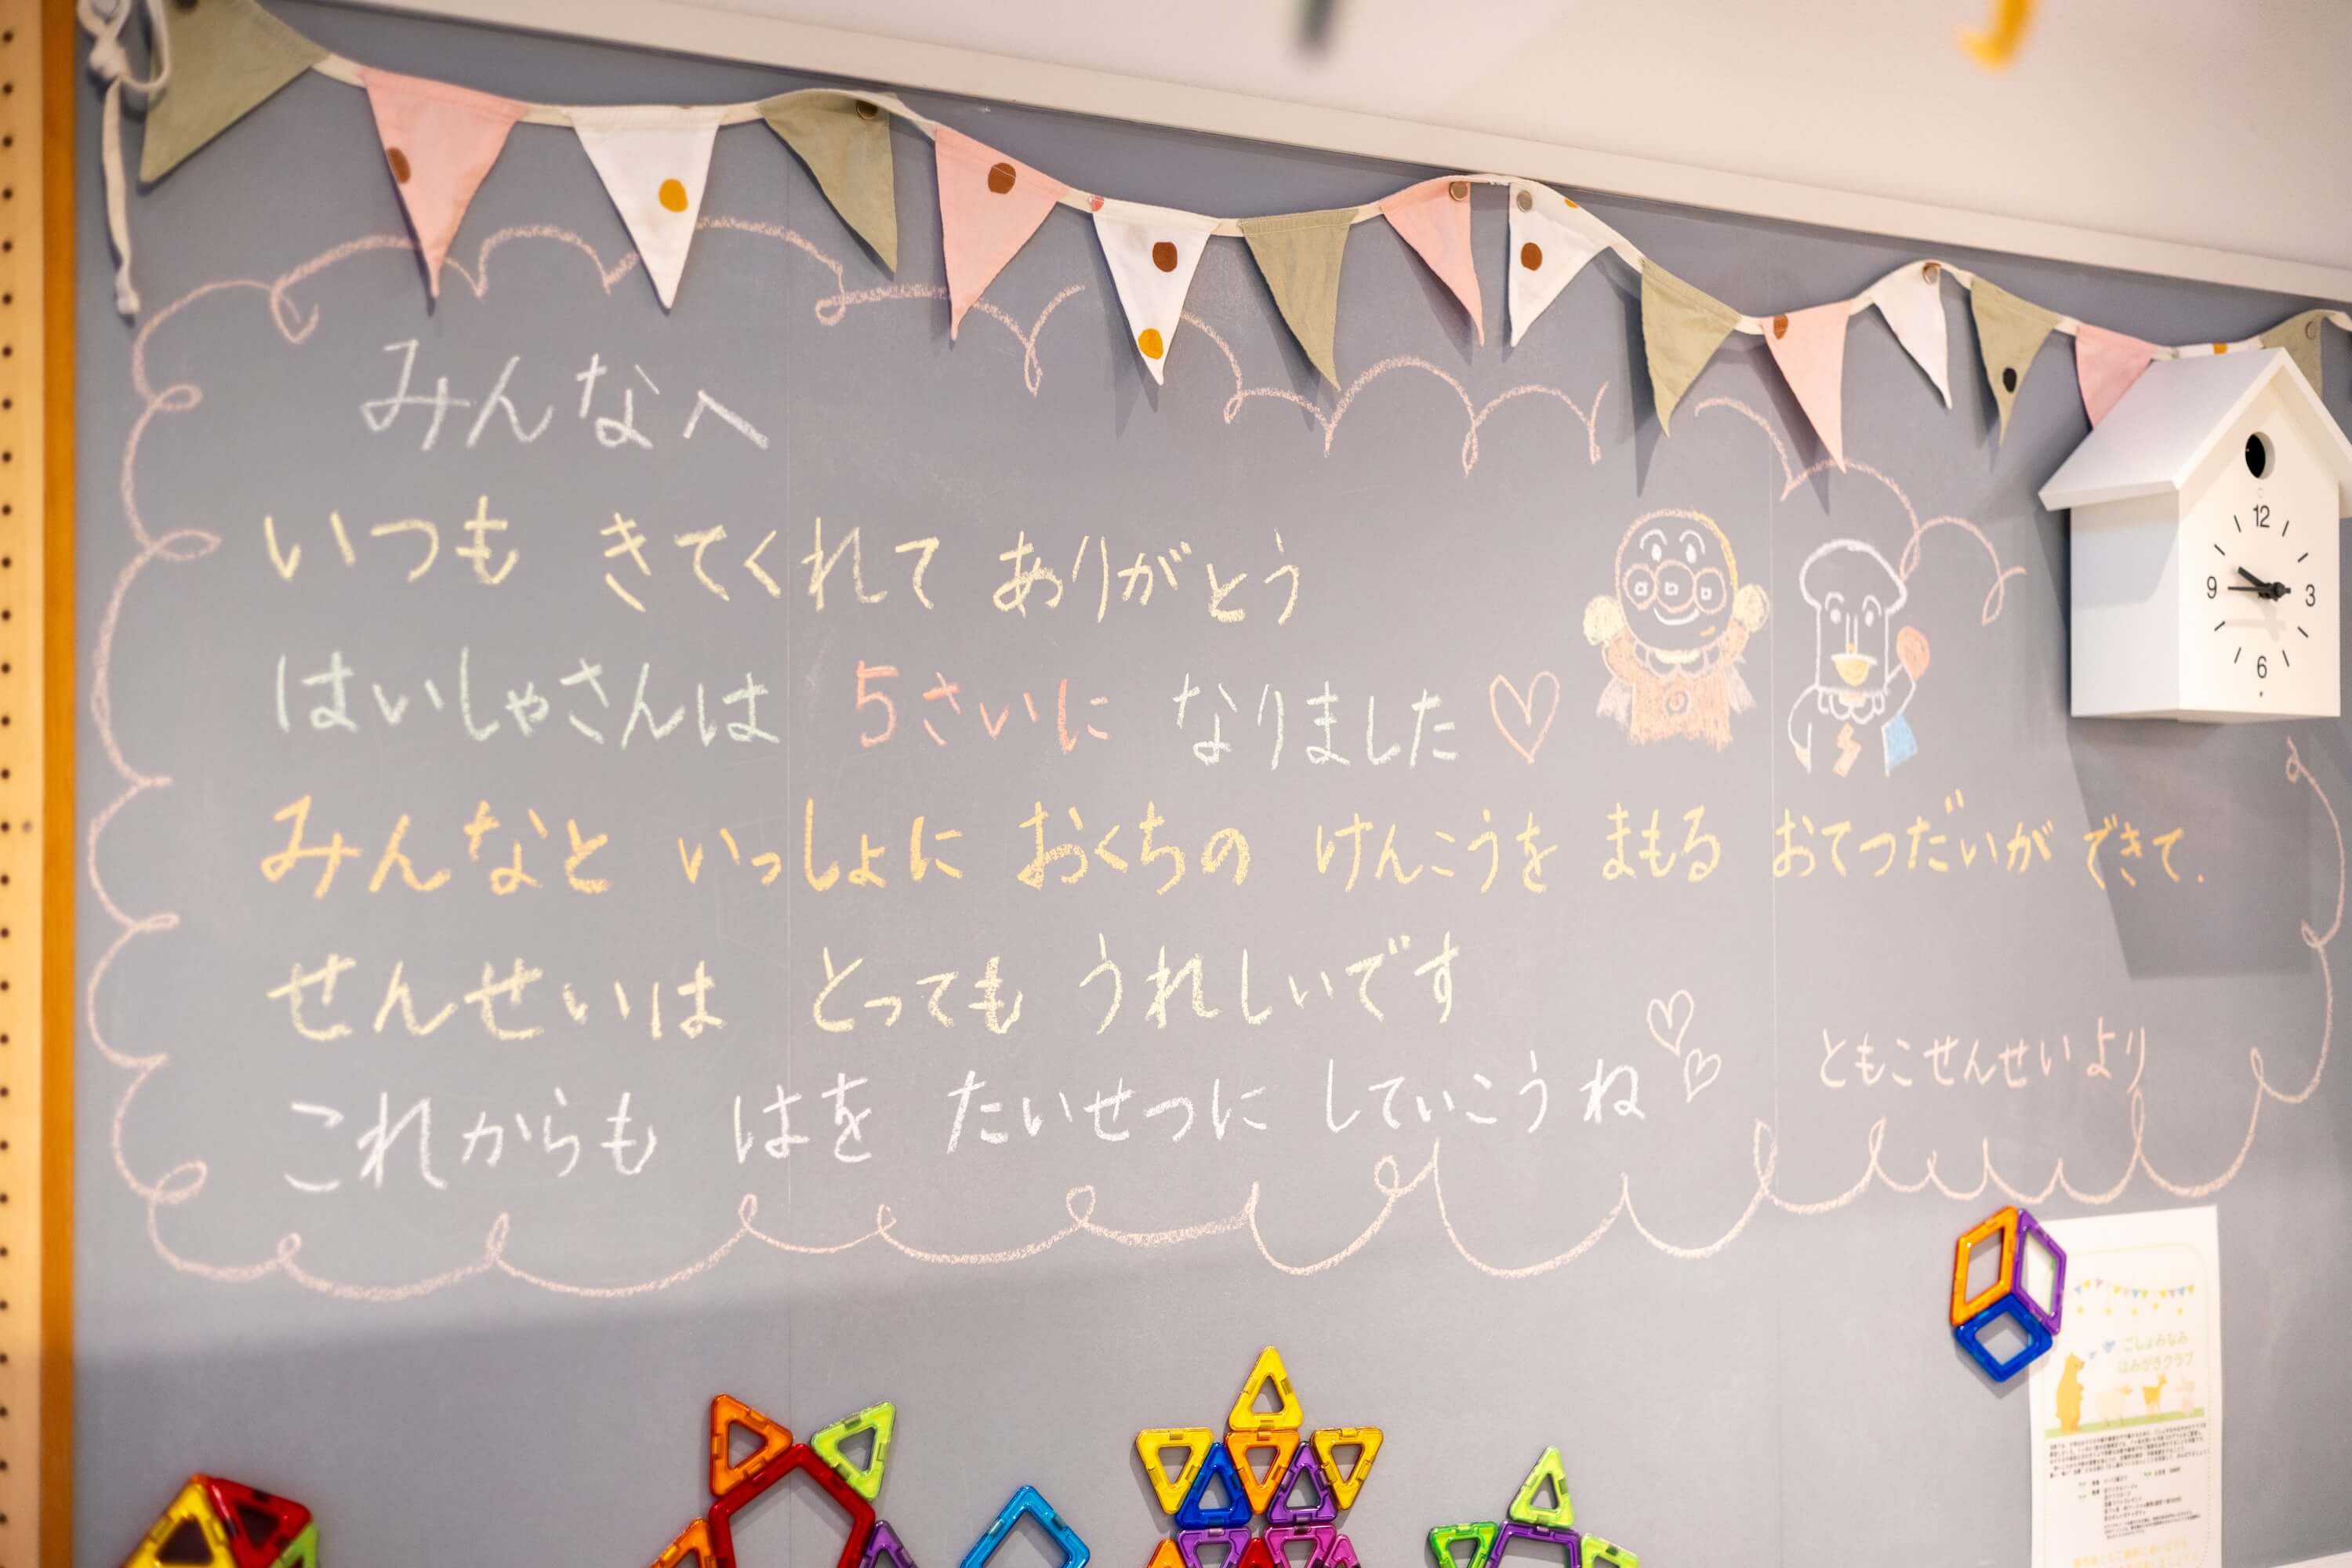 みんなへ
いつも きてくれて ありがとう
はいしゃさんは 5さいに なりました
みんなと いっしょに おくちの けんこうを まもる おてつだいが できて.
せんせいは とっても うれしいです
これからも はを たいせつに していこうね
ともこせんせいより
12
9 3
6
ごしょみなみ
はみがきクラブ